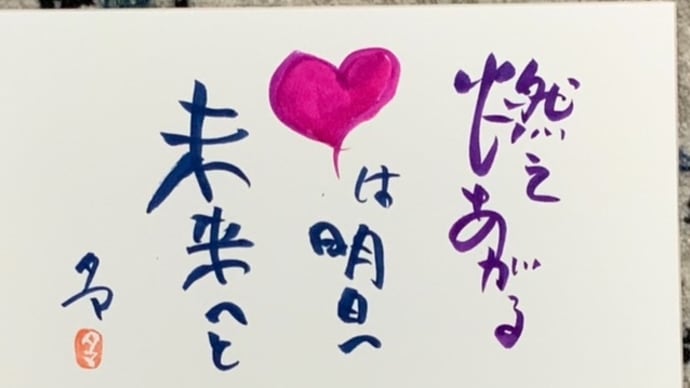 燃えあがる
は明日へ
未来へと
タマ
タマ